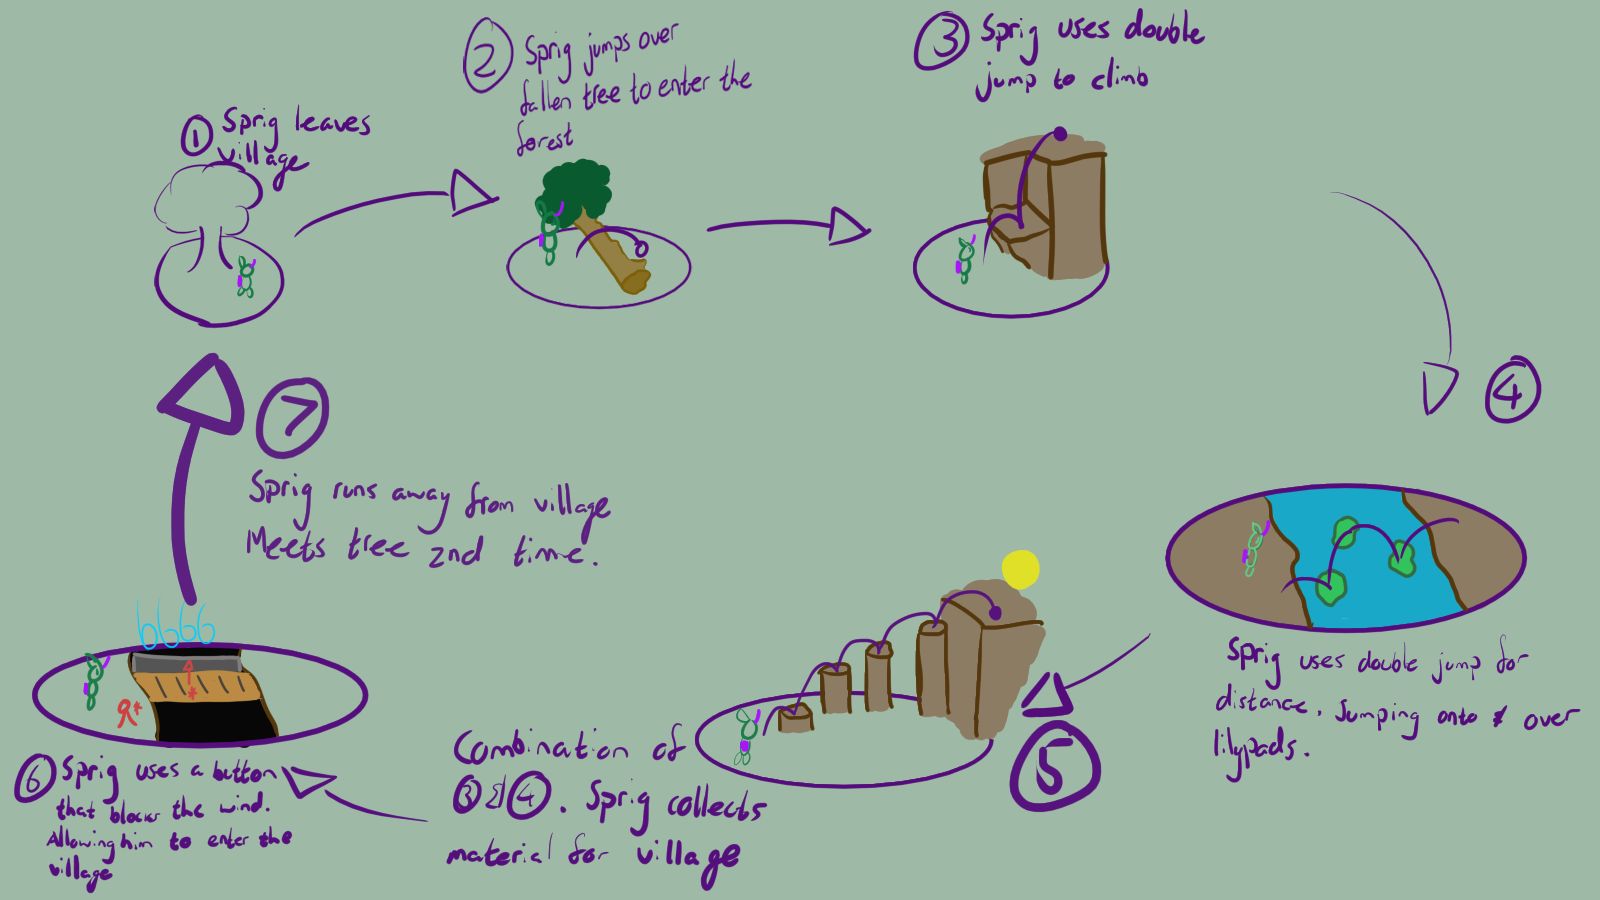 1 Sprig leaves
village
2 Sprig jumps over
fallen tree to enter the
forest
3 Sprig uses double
jump to climb
4
Sprig uses double jump for
distance. Jumping onto & over
lilypads.
5
Combination of
3 & 4. Sprig collects
material for village
6 Sprig uses a button
that blocks the wind.
Allowing him to enter the
village
7
Sprig runs away from village
Meets tree 2nd time.